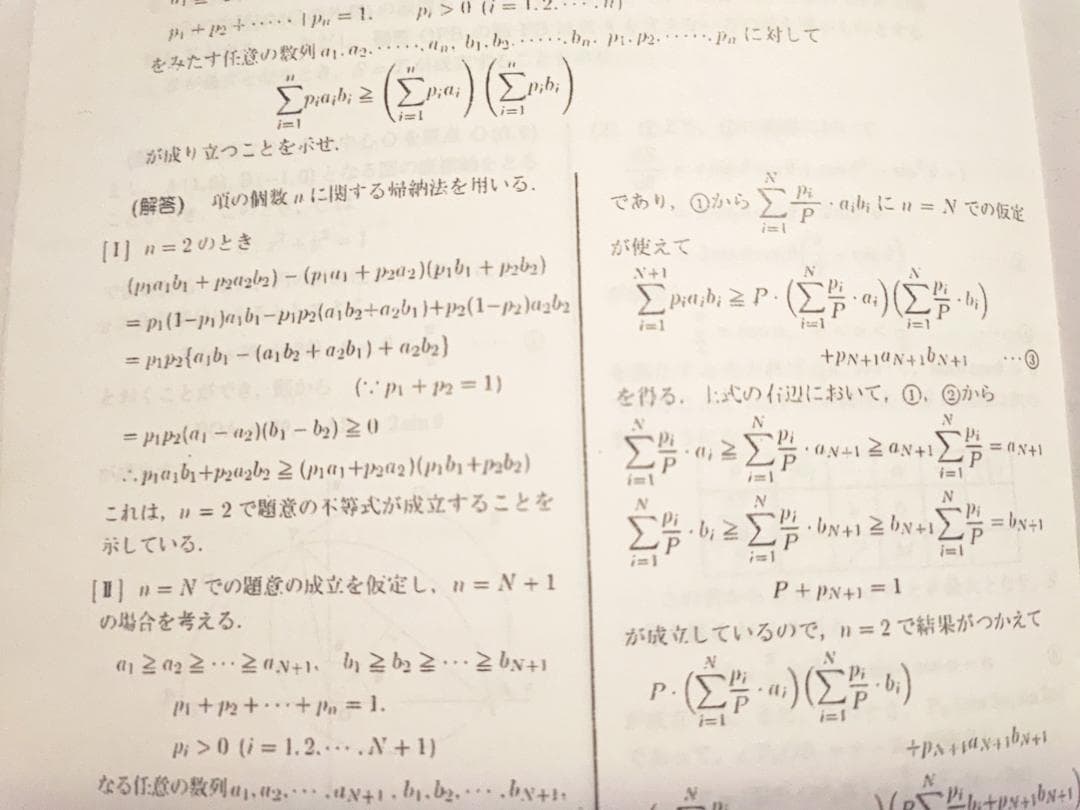 p₁+p₂+……+pₙ=1. pᵢ>0 (i=1.2.….n)
をみたす任意の数列 a₁.a₂.……,aₙ, b₁.b₂.……,bₙ, p₁.p₂.……,pₙ に対して
\sum_{i=1}^{n} pᵢaᵢbᵢ ≧ (\sum_{i=1}^{n} pᵢaᵢ)(\sum_{i=1}^{n} pᵢbᵢ)
が成り立つことを示せ.
(解答) 項の個数 n に関する帰納法を用いる.
[I] n=2のとき
(p₁a₁b₁+p₂a₂b₂)-(p₁a₁+p₂a₂)(p₁b₁+p₂b₂)
=p₁(1-p₁)a₁b₁-p₁p₂(a₁b₂+a₂b₁)+p₂(1-p₂)a₂b₂
=p₁p₂{a₁b₁-(a₁b₂+a₂b₁)+a₂b₂}
(∵p₁+p₂=1)
=p₁p₂(a₁-a₂)(b₁-b₂)≧0
∴p₁a₁b₁+p₂a₂b₂≧(p₁a₁+p₂a₂)(p₁b₁+p₂b₂)
これは, n=2で題意の不等式が成立することを
示している.
[II] n=N での題意の成立を仮定し, n=N+1
の場合を考える.
a₁≧a₂≧…≧a_{N+1}, b₁≧b₂≧…≧b_{N+1}
p₁+p₂+…+pₙ=1.
pᵢ>0 (i=1.2.….N+1)
なる任意の数列 a₁,a₂,….a_{N+1}.b₁.b₂.….b_{N+1},
であり, ①から \sum_{i=1}^{N} \frac{pᵢ}{P}・aᵢbᵢ に n=N での仮定
が使えて
\sum_{i=1}^{N+1} pᵢaᵢbᵢ ≧ P・(\sum_{i=1}^{N} \frac{pᵢ}{P}・aᵢ)(\sum_{i=1}^{N} \frac{pᵢ}{P}・bᵢ)
+p_{N+1}a_{N+1}b_{N+1} …③
を得る. 上式の右辺において, ①, ②から
\sum_{i=1}^{N} \frac{pᵢ}{P}・aᵢ ≧ \sum_{i=1}^{N} \frac{pᵢ}{P}・a_{N+1} ≧ a_{N+1}\sum_{i=1}^{N} \frac{pᵢ}{P} = a_{N+1}
\sum_{i=1}^{N} \frac{pᵢ}{P}・bᵢ ≧ \sum_{i=1}^{N} \frac{pᵢ}{P}・b_{N+1} ≧ b_{N+1}\sum_{i=1}^{N} \frac{pᵢ}{P} = b_{N+1}
P+p_{N+1}=1
が成立しているので, n=2で結果がつかえて
P・(\sum_{i=1}^{N} \frac{pᵢ}{P}・aᵢ)(\sum_{i=1}^{N} \frac{pᵢ}{P}・bᵢ)
+p_{N+1}a_{N+1}b_{N+1}